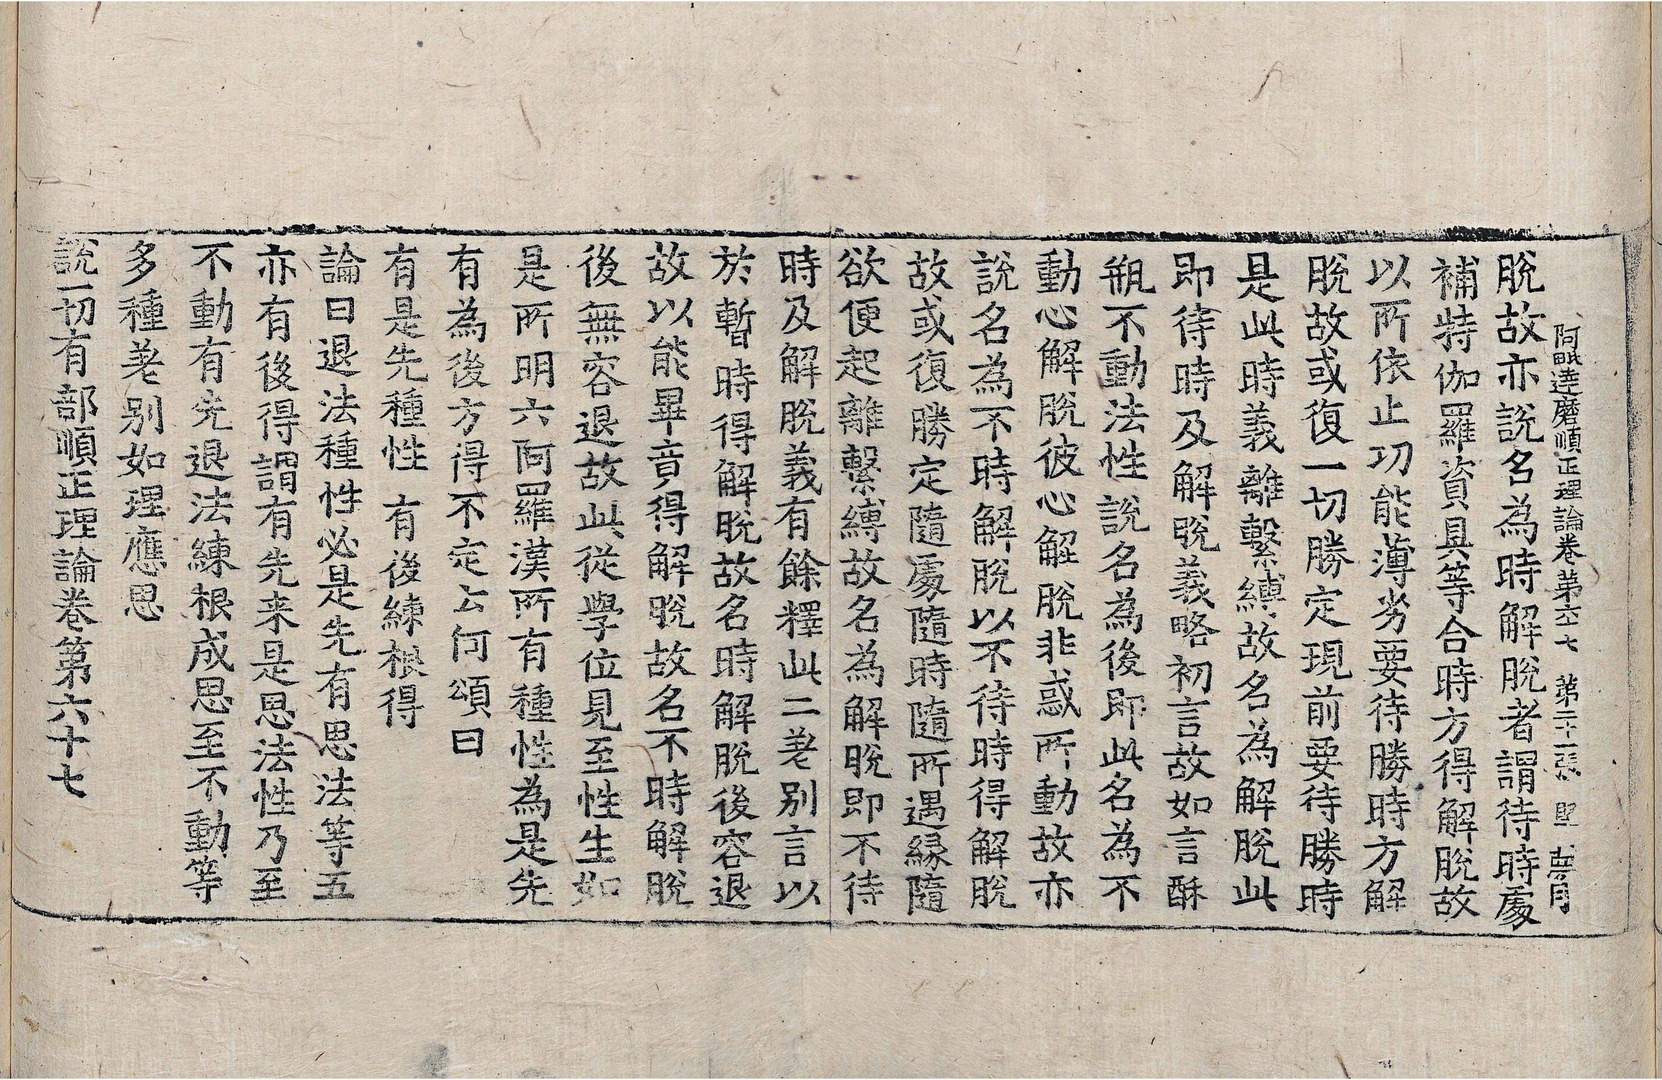 阿毗達磨順正理論卷第六七 第二十一張 堅 夢月
脫故亦說名為時解脫者謂待時處
補特伽羅資具等合時方得解脫故
以所依止功能薄劣要待勝時方解
脫故或復一切勝定現前要待勝時
是此時義離繫縛故名為解脫此
即待時及解脫義略初言故如言酥
瓶不動法性說名為後即此名為不
動心解脫彼心解脫非惑所動故亦
說名為不時解脫以不待時得解脫
故或復勝定隨處隨時隨所遇緣隨
欲便起離繫縛故名為解脫即不待
時及解脫義有餘釋此二差別言以
於暫時得解脫故名時解脫後容退
故以能畢竟得解脫故名不時解脫
後無容退故此從學位見至性生如
是所明六阿羅漢所有種性為是先
有為後方得不定云何頌曰
有是先種性 有後練根得
論曰退法種性必是先有思法等五
亦有後得謂有先来是思法性乃至
不動有先退法練根成思至不動等
多種差別如理應思
說一切有部順正理論卷第六十七